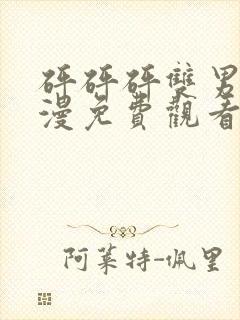 砰砰砰雙男
漫免費觀看
阿萊特-佩里